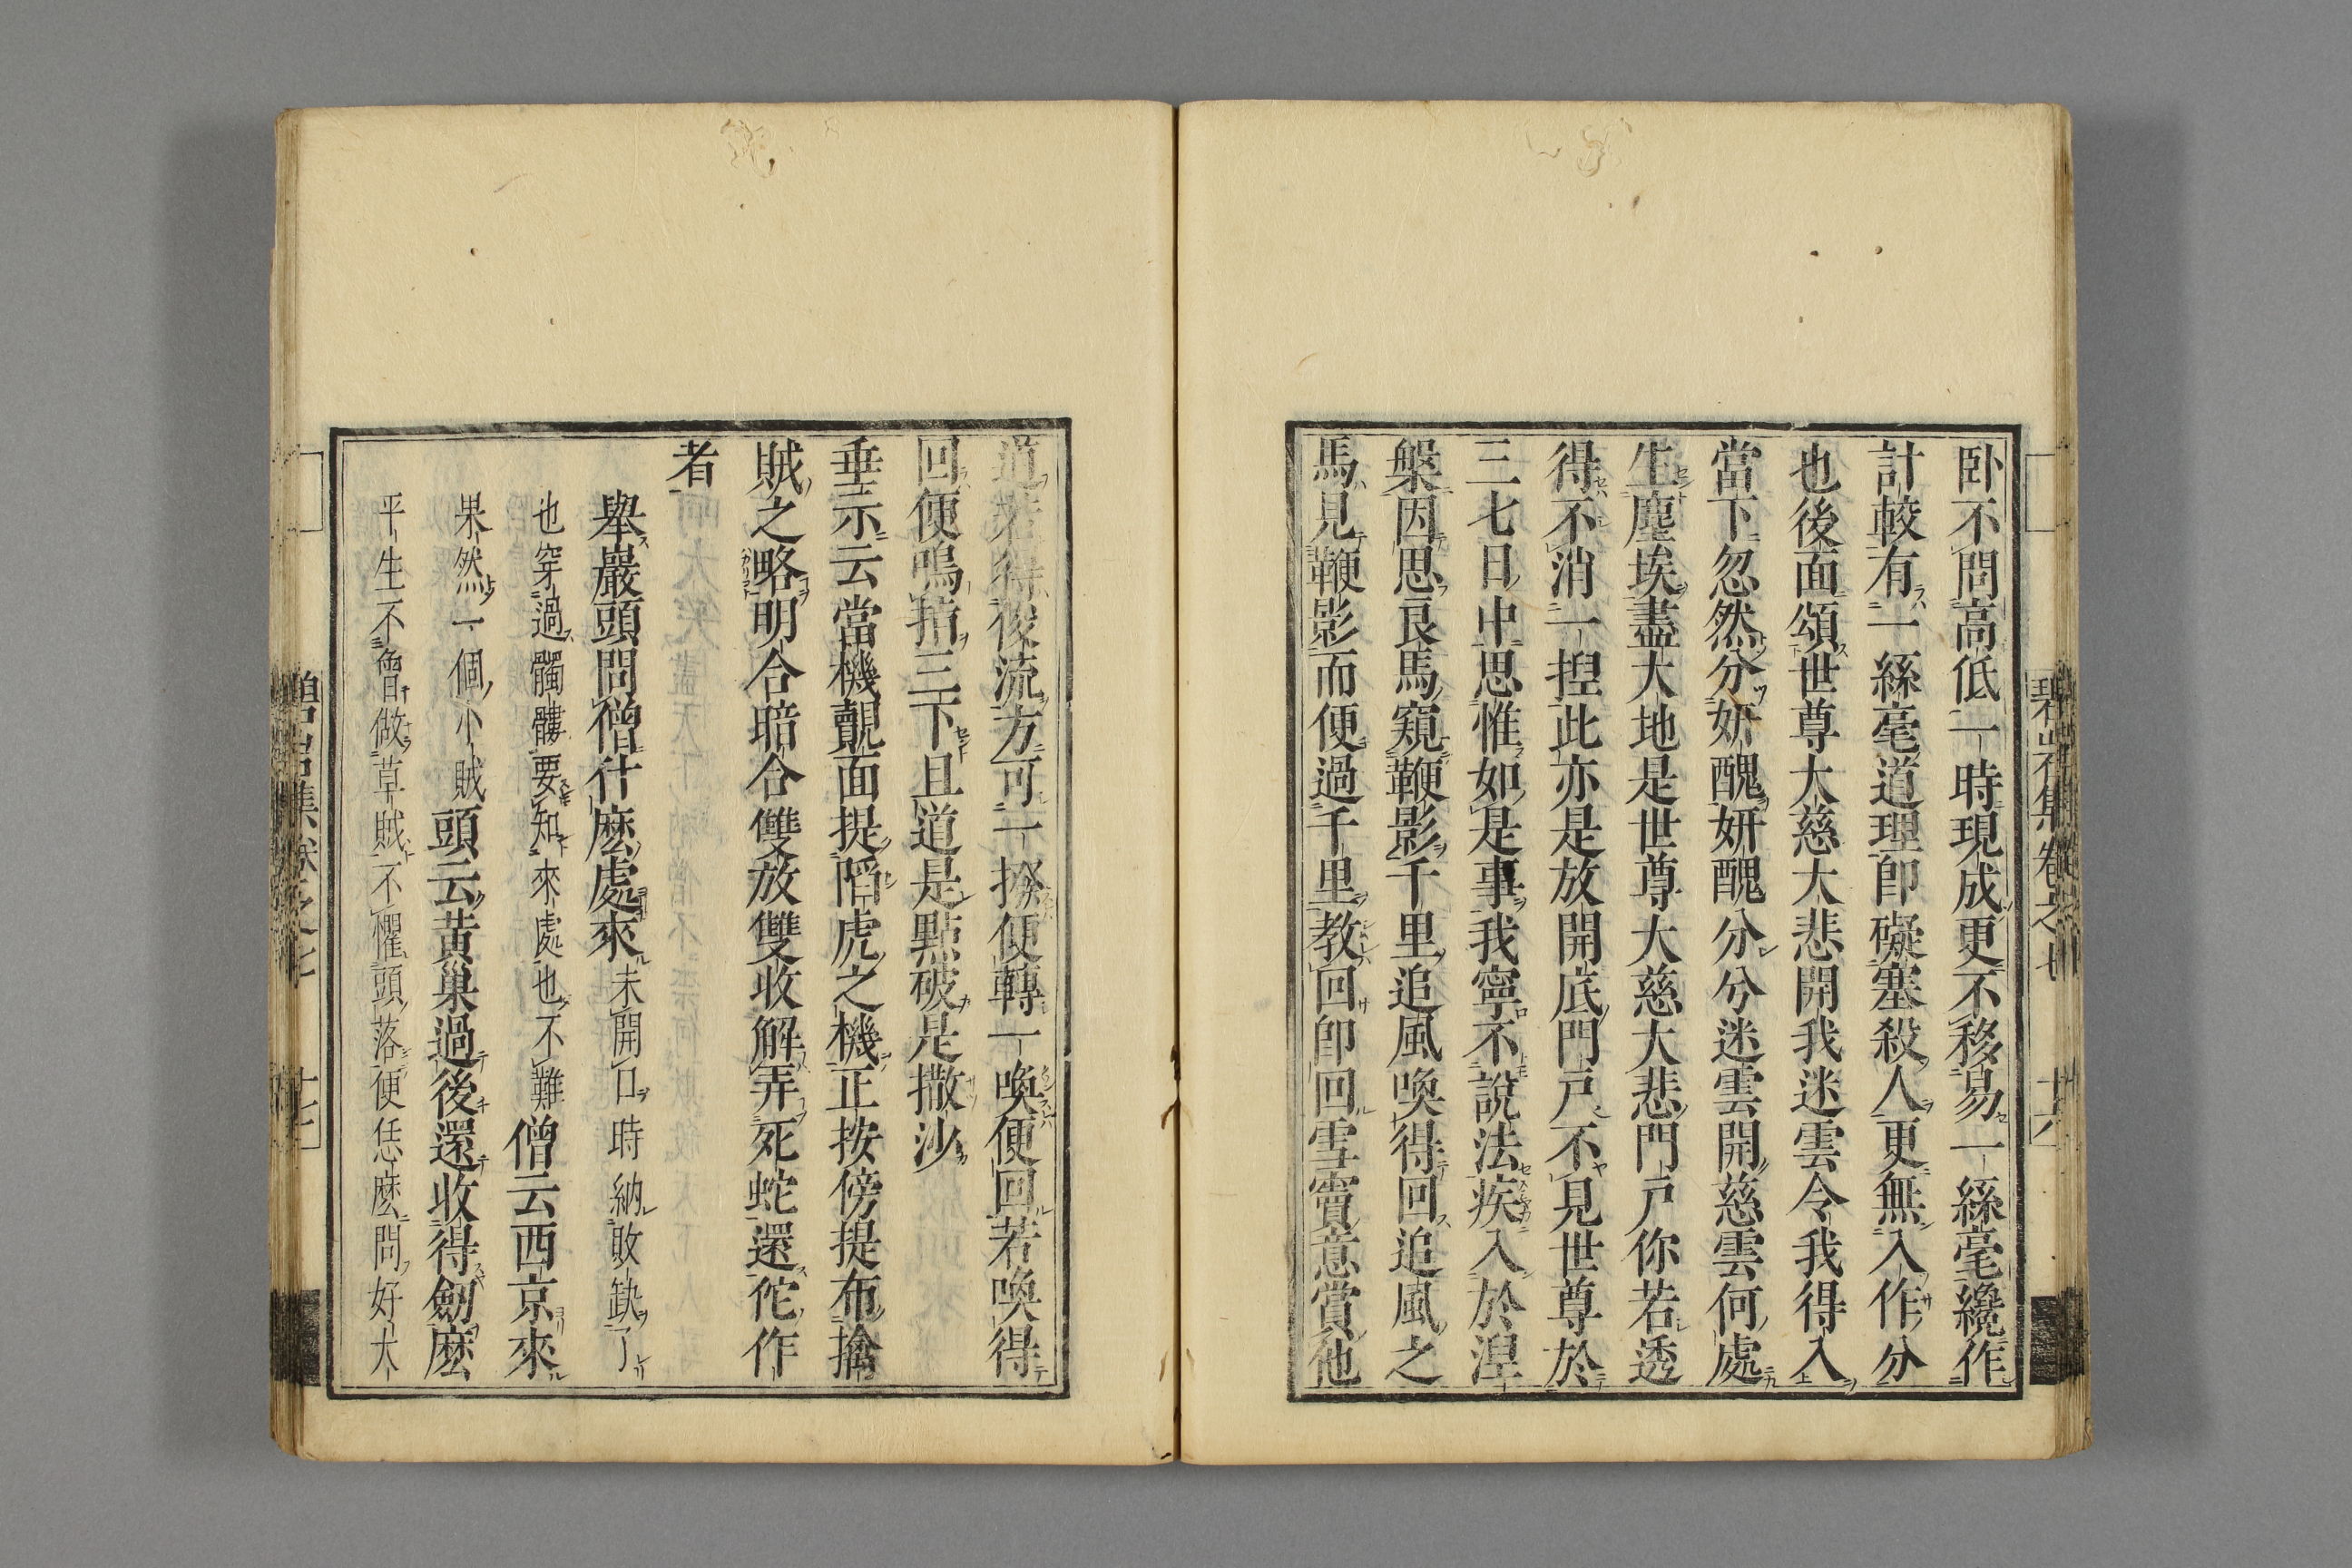 碧岩集卷之七
十六
卧不問高低一時現成更不移易一絲毫纔作
計較有一絲毫道理即礙塞殺人更無入作分
也後面頌世尊大慈大悲開我迷雲令我得入
當下忽然分妍醜妍醜分兮迷雲開慈雲何處
生塵埃盡大地是世尊大慈大悲門戶你若透
得不消一捏此亦是放開底門戶不見世尊於
三七日中思惟如是事我寧不說法疾入於涅
槃因思良馬窺鞭影千里追風喚得回追風之
馬見鞭影而便過千里教回即回雪竇意賞他
道若得俊流方可一撥便轉一喚便回若喚得
回便鳴指三下且道是點破是撒沙
垂示云當機覿面提陷虎之機正按傍提布擒
賊之略明合暗合雙放雙收解弄死蛇還佗作
者
舉巖頭問僧什麽處來未開口時納敗缺了
也穿過髑髏要知來處也不難僧云西京來
果然一個小賊頭云黃巢過後還收得劒麽
平生不曾做草賊不懼頭落便恁麽問好大
碧岩集卷之七
十七